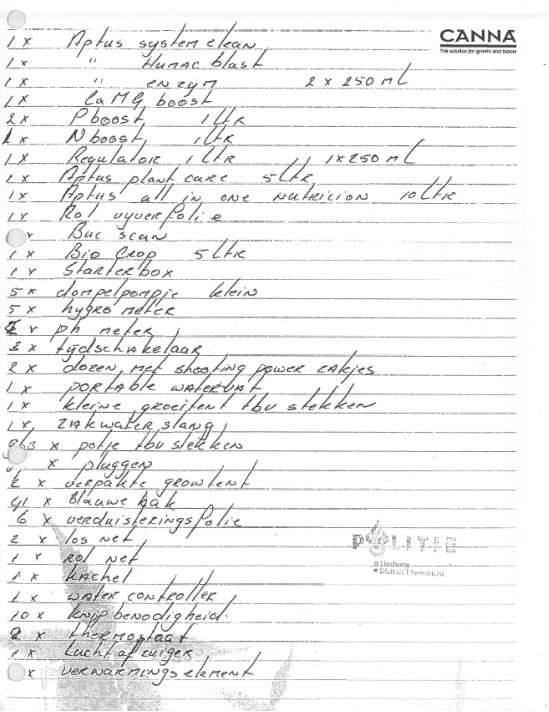 CANNA
The solution for growth and bloom
1 x Aptus system clean
1 x " Humac blast
1 x " enzym 2 x 250 ml
1 x CaMG boost
2 x P boost 1 ltr
1 x N boost 1 ltr
1 x Regulator 1 ltr 1 x 250 ml
1 x Aptus plant care 5 ltr
1 x Aptus all in one nutricion 10 ltr
1 x Rol vyverfolie
x Buc scan
1 x Bio Crop 5 ltr
1 x Starterbox
5 x dompelpompje klein
5 x hygrometer
x ph meter
3 x tijdschakelaar
2 x dozen met shooting power zakjes
1 x portable watervat
1 x kleine groeitent tbv stekken
1 x zakwaterslang
x potje tbv stekken
x pluggen
2 x verpakte growtent
41 x Blauwe bak
6 x verduisteringsfolie
2 x los net
1 x Rol net
1 x kachel
1 x water controller
10 x knipbenodigheid
2 x thermostaat
1 x Luchtafzuiger
x verwarmingselement
POLITIE
Limburg